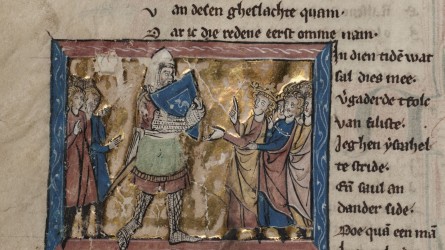 van desen gheslachte quam.
Dar ic die redene eerst omme nam.
In dien tidē wat
sal dies mee.
Vgaderde tfolc
van filiste.
Jeghen ysrahel
te stride.
En̄ saul an
dander side.
Doe quā een mā